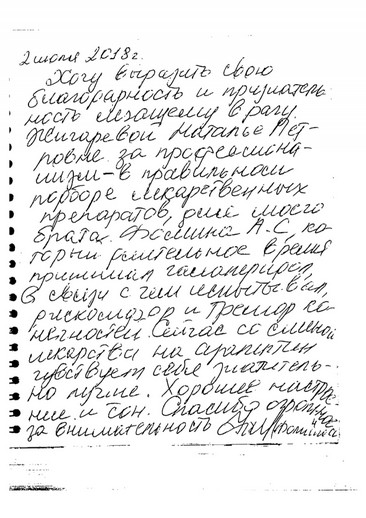 2 июля 2018 г.
Хочу выразить свою
благодарность и признатель
ность лечащему врачу
Жигаревой Наталье Пет-
ровне за профессиона-
лизм - в правильном
подборе лекарственных
препаратов, для моего
брата Фомина А.С, ко
торый длительное время
принимал галоперидол,
в связи с чем испытывал
дискомфорт и тремор ко
нечностей. Сейчас со сменой
лекарства на
чувствует себя значитель-
но лучше. Хорошее настрое
ние и сон. Спасибо огромное
за внимательность